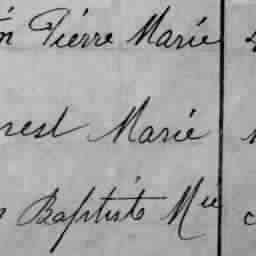 Pierre Marie
nest Marie
Baptiste Mie